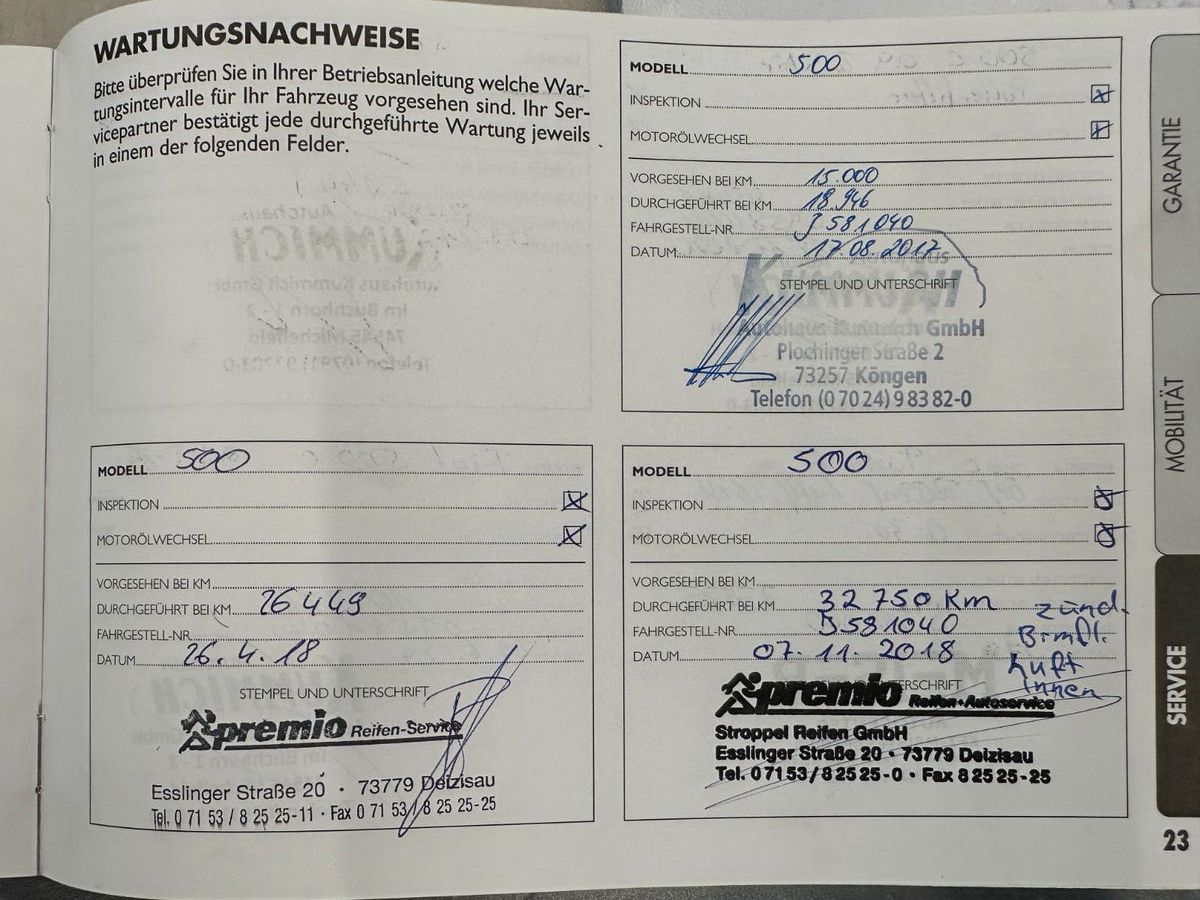 WARTUNGSNACHWEISE
Bitte überprüfen Sie in Ihrer Betriebsanleitung welche War-
tungsintervalle für Ihr Fahrzeug vorgesehen sind. Ihr Ser-
vicepartner bestätigt jede durchgeführte Wartung jeweils
in einem der folgenden Felder.
MODELL 500
INSPEKTION
MOTORÖLWECHSEL
VORGESEHEN BEI KM 15.000
DURCHGEFÜHRT BEI KM 18.946
FAHRGESTELL-NR. J581040
DATUM: 17.08.2017
STEMPEL UND UNTERSCHRIFT
KUMMICH
Autohaus Kummich GmbH
Plochinger Straße 2
73257 Köngen
Telefon (0 70 24) 9 83 82-0
MODELL 500
INSPEKTION
MOTORÖLWECHSEL
VORGESEHEN BEI KM
DURCHGEFÜHRT BEI KM 26449
FAHRGESTELL-NR.
DATUM 26.4.18
STEMPEL UND UNTERSCHRIFT
premio Reifen-Service
Esslinger Straße 20 · 73779 Deizisau
Tel. 0 71 53 / 8 25 25-11 · Fax 0 71 53 / 8 25 25-25
MODELL 500
INSPEKTION
MOTORÖLWECHSEL
VORGESEHEN BEI KM
DURCHGEFÜHRT BEI KM 32750 Km
FAHRGESTELL-NR. J581040
DATUM 07.11.2018
zünd.
Brmfl.
Luft
innen
STEMPEL UND UNTERSCHRIFT
premio Reifen+Autoservice
Stroppel Reifen GmbH
Esslinger Straße 20 · 73779 Deizisau
Tel. 0 71 53 / 8 25 25-0 · Fax 8 25 25-25
GARANTIE
MOBILITÄT
SERVICE
23